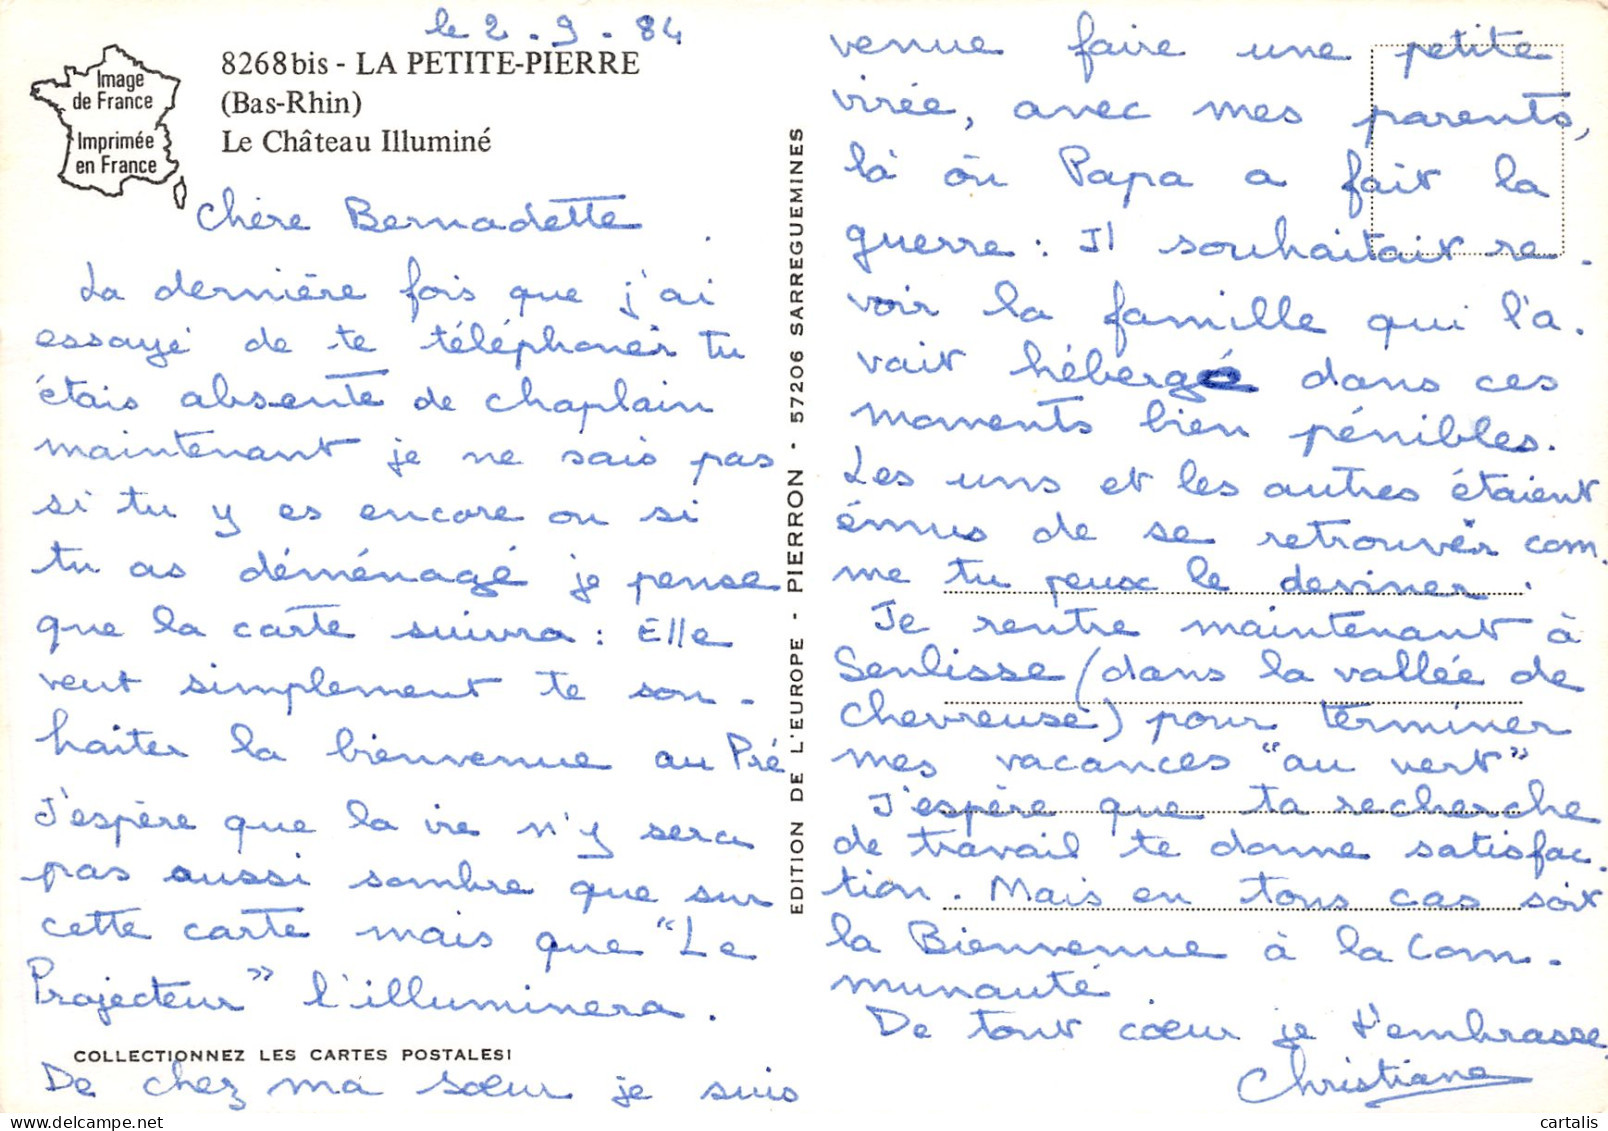 le 2.9.84
8268bis - LA PETITE-PIERRE
(Bas-Rhin)
Le Château Illuminé
Image
de France
Imprimée
en France
Chère Bernadette.
La dernière fois que j'ai
essayé de te téléphoner tu
étais absente de chaplain
maintenant je ne sais pas
si tu y es encore ou si
tu as déménagé je pense
que la carte suivra : Elle
veut simplement te sou-
haiter la bienvenue au Pré
J'espère que la vie n'y sera
pas aussi sombre que sur
cette carte mais que "Le
Projecteur" l'illuminera.
COLLECTIONNEZ LES CARTES POSTALES!
De chez ma sœur je suis
EDITION DE L'EUROPE - PIERRON - 57206 SARREGUEMINES
venue faire une petite
virée, avec mes parents,
là où Papa a fait la
guerre : Il souhaitait re-
voir la famille qui l'a-
vait hébergé dans ces
moments bien pénibles.
Les uns et les autres étaient
émus de se retrouver com-
me tu peux le deviner.
Je rentre maintenant à
Senlisse (dans la vallée de
chevreuse) pour terminer
mes vacances "au vert"
J'espère que ta recherche
de travail te donne satisfac-
tion. Mais en tous cas soit
la Bienvenue à la Com-
munauté
De tout cœur je t'embrasse
Christiane
cartalis.com